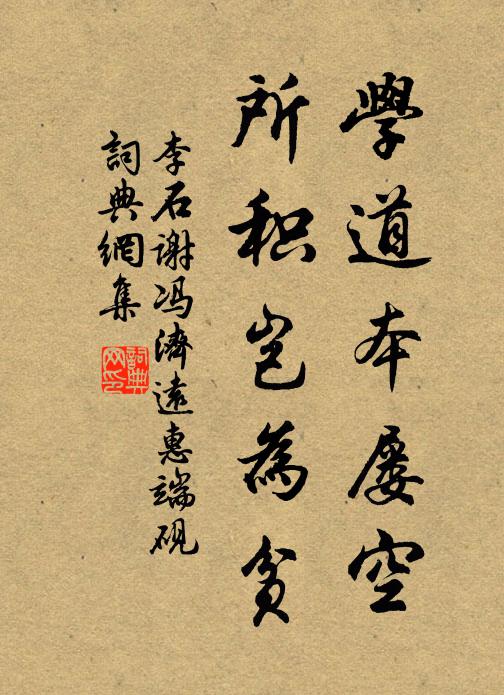 學道本屡空
所积岂為貧
李石谢冯濟遠惠端砚
詞典網集
詞典網印